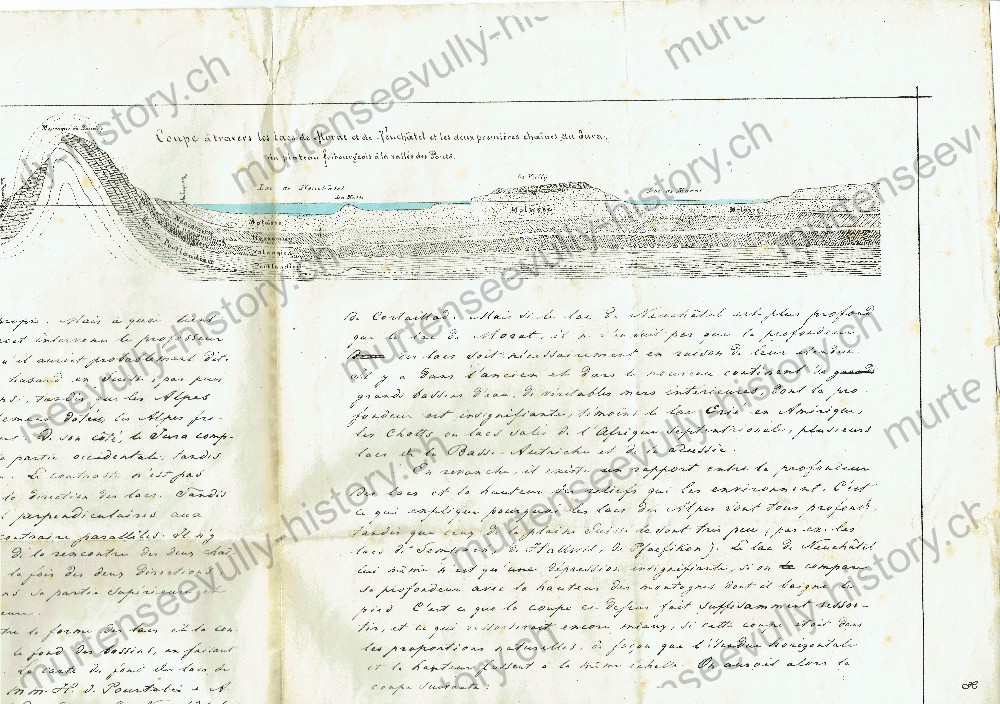 Coupe à travers les lacs de Morat et de Neuchâtel et les deux premières chaînes du Jura,
du plateau fribourgeois à la vallée des Ponts.
Lac de Neuchâtel
Le Vully
Lac de Morat
Molasse
Molasse
Molasse
Néocomien
Valangien
Portlandien
Portlandien
propre. Mais à quoi tient
intervenu le professeur
qu'il aurait probablement dit
hasard en Suisse, pas plus
tandis que les Alpes
les Alpes
De son côté, le Jura
la partie occidentale, tandis
Le contraste n'est pas
la direction des lacs. Tandis
perpendiculaires aux
contraire parallèles. Il n'y
de la rencontre des deux
la fois des deux directions
dans sa partie supérieure
la forme des lacs à la
le fond des bassins, en faisant
la carte du fond des lacs de
MM. H. de Pourtalès & A.
de Cortaillod. Mais si le lac de Neuchâtel est plus profond
que le lac de Morat, il ne s'ensuit pas que la profondeur
des lacs soit nécessairement en raison de leur étendue.
Il y a dans l'ancien et dans le nouveau continent de
grands bassins d'eau, de véritables mers intérieures, dont la pro-
fondeur est insignifiante, témoins le lac Erié en Amérique,
les Chotts ou lacs salés de l'Afrique septentrionale, plusieurs
lacs de la Basse-Autriche et de la
En revanche, il existe un rapport entre la profondeur
des lacs et la hauteur des reliefs qui les environnent. C'est
ce qui explique pourquoi les lacs des Alpes sont tous profonds
tandis que ceux de la plaine Suisse le sont très peu; par ex. les
lacs de Sempach, de Hallwil, de Pfaefikon). Le lac de Neuchâtel
lui même n'est qu'une dépression insignifiante, si on compare
sa profondeur avec la hauteur des montagnes dont il baigne le
pied. C'est ce que la coupe ci-dessus fait suffisamment ressor-
tir, et ce qui ressortirait encore mieux, si cette coupe était dans
les proportions naturelles, de façon que l'étendue horizontale
et la hauteur fussent à la même échelle. On aurait alors la
coupe suivante:
murtenseevully-history.ch
murtenseevully-history.ch
murtenseevully-history.ch
murtenseevully-history.ch
murtenseevully-history.ch